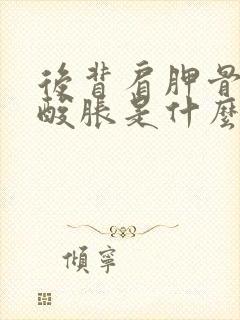 後背肩胛骨
酸脹是什麼
傾寧